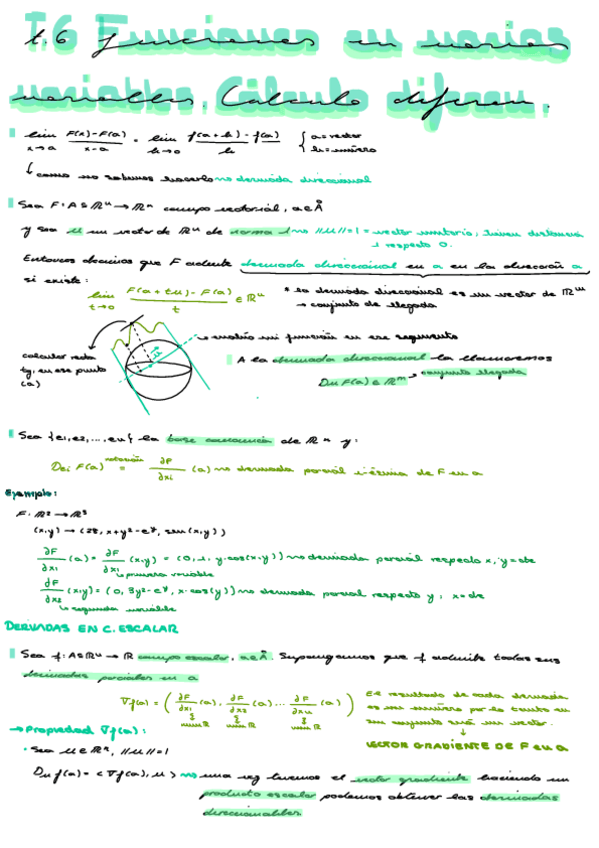 T.6 Funciones en varias
variables. Cálculo diferen.
lim x→a F(x)-F(a) / x-a = lim h→0 f(a+h)-f(a) / h { a=vector h=número
↳ como no sabemos hacerlo ⇝ derivada direccional
Sea F: A⊆ℝⁿ→ℝᵐ campo vectorial, a∈Å
y sea u un vector de ℝⁿ de norma 1 ⇝ ||u||=1 = vector unitario; tienen distancia
1 respecto 0.
Entonces decimos que F admite derivada direccional en a en la dirección u
si existe:
lim t→0 F(a+tu)-F(a) / t ∈ ℝᵐ
* la derivada direccional es un vector de ℝᵐ
→ conjunto de llegada
calcular recta
tg, en ese punto
(a)
u
mi función en ese segmento
A la derivada direccional la llamaremos
DuF(a)∈ℝᵐ → conjunto llegada
Sea {e1,e2,...,en} la base canónica de ℝⁿ y:
Dei F(a) notación = ∂F/∂xi (a) ⇝ derivada parcial i-ésima de F en a
Ejemplo:
F: ℝ²→ℝ³
(x,y) → (28, x+y³-eʸ, sen(x,y))
∂F/∂x1 (a) = ∂F/∂x1 (x,y) = (0, 1, y·cos(x·y)) ⇝ derivada parcial respecto x, y=cte
↳ primera variable
∂F/∂x2 (x,y) = (0, 3y²-eʸ, x·cos(y)) ⇝ derivada parcial respecto y, x=cte
↳ segunda variable
DERIVADAS EN C. ESCALAR
Sea f: A⊆ℝⁿ→ℝ campo escalar, a∈Å. Supongamos que f admite todas sus
derivadas parciales en a
∇f(a) = ( ∂F/∂x1 (a), ∂F/∂x2 (a) ... ∂F/∂xn (a) )
El resultado de cada derivada
es un número por lo tanto en
su conjunto será un vector.
↓
VECTOR GRADIENTE DE F en a
→ Propiedad ∇f(a):
• Sea u∈ℝⁿ, ||u||=1
Duf(a) = <∇f(a), u> ⇝ una vez tenemos el vector gradiente haciendo un
producto escalar podemos obtener las derivadas
direccionables